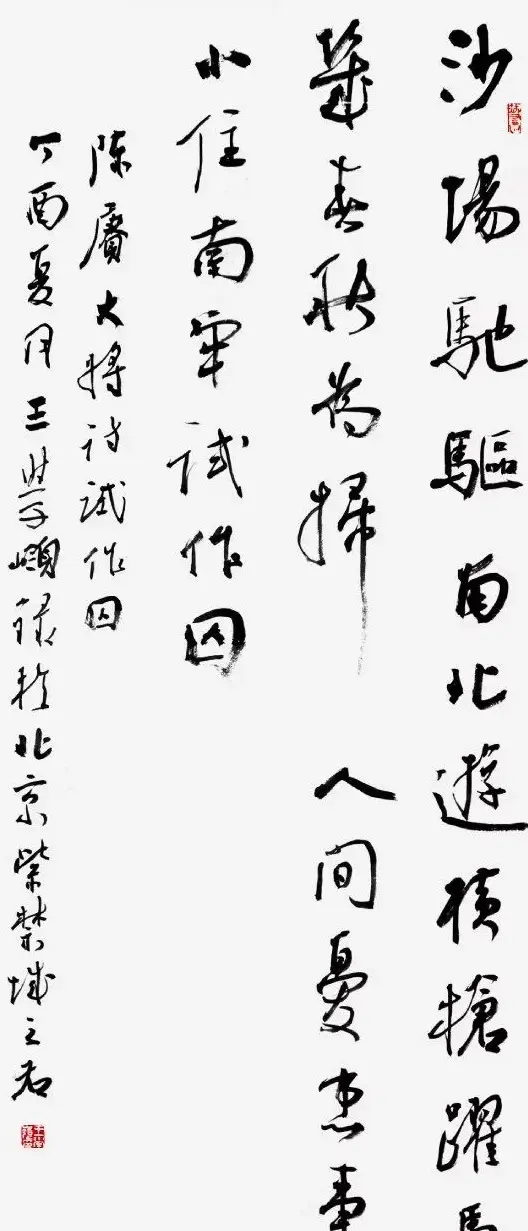 沙場馳驅南北遊橫槍躍馬
幾春秋為掃人間憂患事
小住南牢試作囚
陳賡大將詩試作囚
丁酉夏月王學嶺錄於北京紫禁城之右